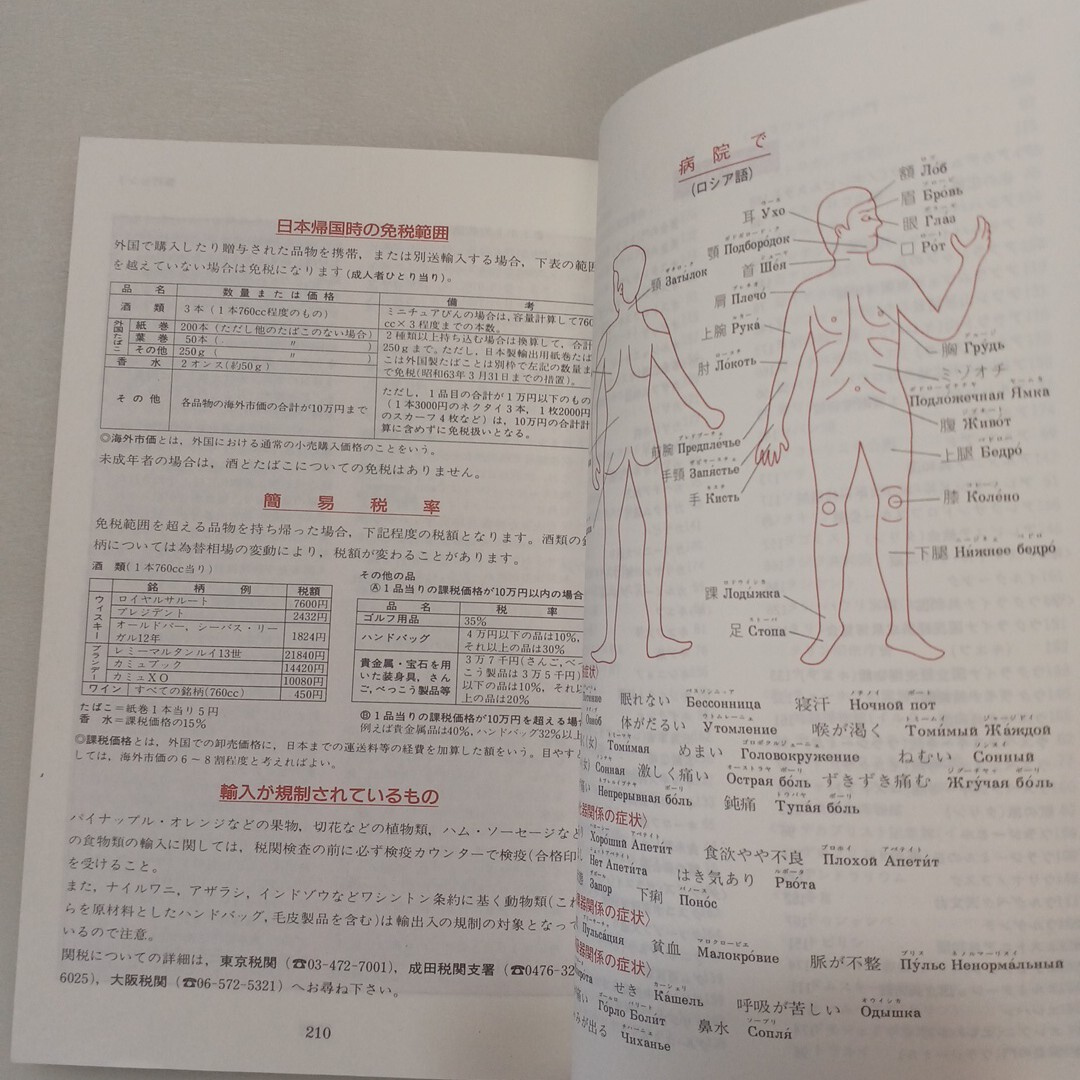 日本帰国時の免税範囲
外国で購入したり贈与された品物を携帯，または別送輸入する場合，下表の範囲
を越えていない場合は免税になります(成人者ひとり当り)。
品　名　数量または価格　備　考
酒　類　3本(1本760cc程度のもの)　ミニチュアびんの場合は，容量計算して760
cc×3程度までの本数。
外国たばこ　紙　巻　200本(ただし他のたばこのない場合)　2種類以上持ち込む場合は換算して，合計
葉　巻　50本(　〃　)　250gまで。ただし，日本製輸出用紙巻たば
その他　250g(　〃　)　こは外国製たばことは別枠で左記の数量ま
香　水　2オンス(約50g)　で免税(昭和63年3月31日までの措置)。
その他　各品物の海外市価の合計が10万円まで　ただし，1品目の合計が1万円以下のもの
(1本3000円のネクタイ3本，1枚2000円
のスカーフ4枚など)は，10万円の合計計
算に含めずに免税扱いとなる。
◎海外市価とは，外国における通常の小売購入価格のことをいう。
未成年者の場合は，酒とたばこについての免税はありません。
簡易税率
免税範囲を超える品物を持ち帰った場合，下記程度の税額となります。酒類の銘
柄については為替相場の変動により，税額が変わることがあります。
酒　類(1本760cc当り)
銘　柄　例　税額
ウィスキー　ロイヤルサルート　7600円
プレジデント　2432円
オールドパー，シーバス・リー
ガル12年　1824円
ブランデー　レミーマルタンルイ13世　21840円
カミュブック　14420円
カミュXO　10080円
ワイン　すべての銘柄(760cc)　450円
たばこ＝紙巻1本当り5円
香　水＝課税価格の15%
その他の品
Ⓐ1品当りの課税価格が10万円以内の場合
品　名　税　率
ゴルフ用品　35%
ハンドバッグ　4万円以下の品は10%，
それ以上の品は30%
貴金属・宝石を用
いた装身具，さん
ご，べっこう製品等　3万7千円(さんご，べっ
こう製品は3万5千円)
以下の品は10%，それ以
上の品は20%
Ⓑ1品当りの課税価格が10万円を超える場合
例えば貴金属品は40%，ハンドバッグ32%以上
◎課税価格とは，外国での卸売価格に，日本までの運送料等の経費を加算した額をいう。目やす
しては，海外市価の6～8割程度と考えればよい。
輸入が規制されているもの
パイナップル・オレンジなどの果物，切花などの植物類，ハム・ソーセージなど
の食物類の輸入に関しては，税関検査の前に必ず検疫カウンターで検疫(合格印)
を受けること。
また，ナイルワニ，アザラシ，インドゾウなどワシントン条約に基く動物類(これ
らを原材料としたハンドバッグ,毛皮製品を含む)は輸出入の規制の対象となって
いるので注意。
関税についての詳細は，東京税関(☎03-472-7001)，成田税関支署(☎0476-32
6025)，大阪税関(☎06-572-5321)へお尋ね下さい。
210
病院で
(ロシア語)
額 Лоб
眉 Бро́вь
眼 Глаа
口 Рот
耳 У́хо
顎 Подборо́док
首 Ше́я
頸 Заты́лок
肩 Плечо́
上腕 Рука́
肘 Ло́коть
胸 Гру́дь
ミゾオチ
Подло́жечная Я́мка
腹 Живо́т
前腕 Предпле́чье
手頸 Запя́стье
手 Кисть
上腿 Бедро́
膝 Коле́но
下腿 Ни́жнее бедро́
踝 Лоды́жка
足 Стопа́
眠れない Бессо́нница 寝汗 Ночно́й пот
体がだるい Утомле́ние 喉が渇く Томи́мый Жа́ждой
(女) Томи́мая めまい Головокруже́ние ねむい Со́нный
(女) Со́нная 激しく痛い О́страя бо́ль ずきずき痛む Жгу́чая бо́ль
Непреры́вная бо́ль 鈍痛 Тупа́я бо́ль
器関係の症状〉
Хоро́ший Апети́т 食欲やや不良 Плохо́й Апети́т
Нет Апети́та はき気あり Рво́та
Запо́р 下痢 Поно́с
器関係の症状〉
Пульса́ция 貧血 Малокро́вие 脈が不整 Пу́льс Ненорма́льный
器関係の症状〉
せき Ка́шель 呼吸が苦しい Оды́шка
Го́рло Боли́т 鼻水 Сопля́
みが出る Чиха́нье